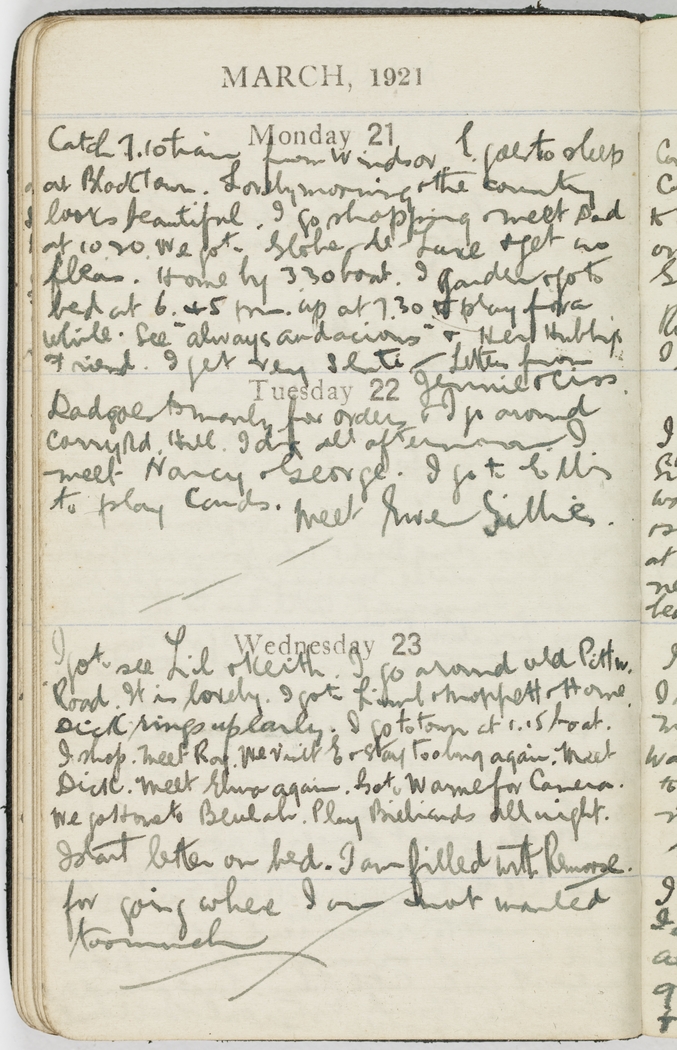 MARCH, 1921
Monday 21
Catch 7.10 train from Windsor. I go to sleep
at Blacktown. Lovely morning & the country
looks beautiful. I go shopping & meet Dad
at 10 30. We go to Globe De Luxe & get no
fleas. Home by 3 30 boat. I garden & go to
bed at 6.45 pm. up at 7.30 & play for a
while. See "always audacious" & Her Hubby's
Friend. I get very Letter from
Tuesday 22 Jennie & Ciss.
Dad goes to manly for orders & I go around
Curry Rd. Hill. I dig all afternoon. I
meet Nancy & George. I go to Ellis
to play Cards. Meet Gwen Gillies.
Wednesday 23
I go to see Lil & Keith. I go around old Pittw.
Road. It is lovely. I go to & Moppett & Home.
Dick rings up early. I go to town at 1.15 boat.
I shop. Meet Roy. We visit E & stay too long again. Meet
Dick. Meet again. Go to Warne for Camera.
We go Home to Beulah. Play Billiards all night.
I start letter on bed. I am filled with Remorse.
for going where I am not wanted
too much